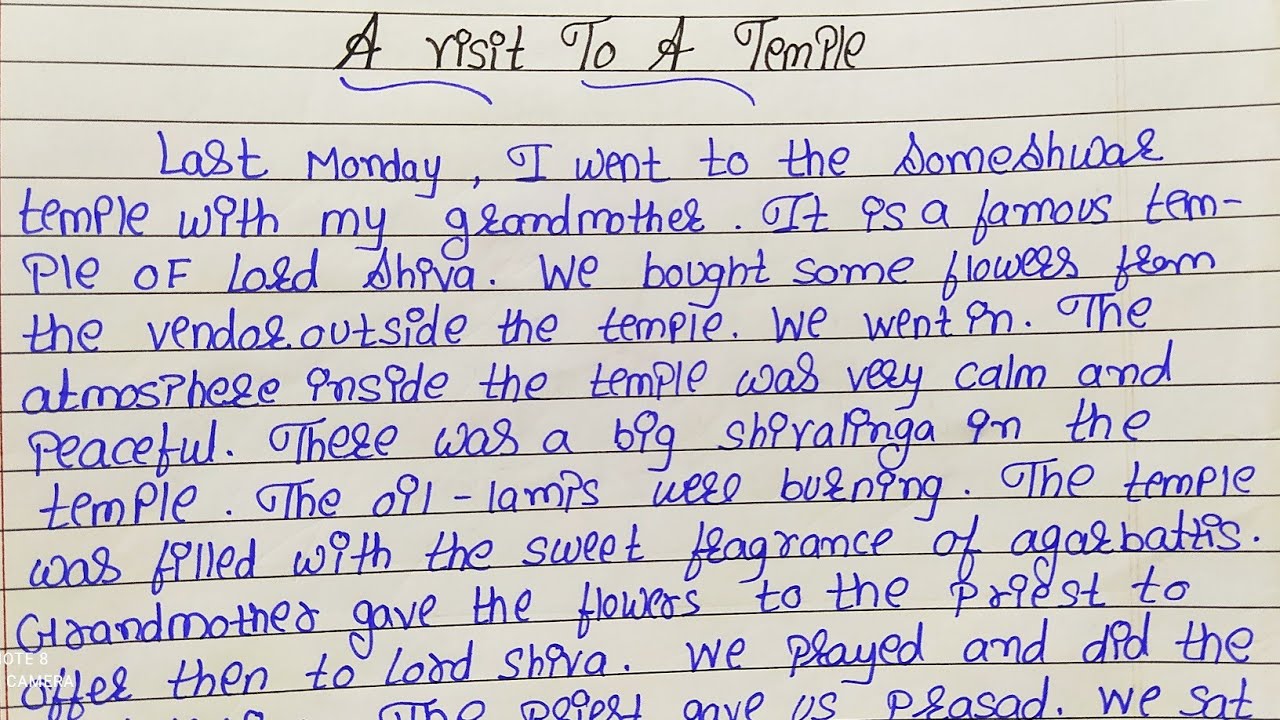 A visit To A Temple
Last Monday, I went to the Someshwar
temple with my grandmother. It is a famous tem-
ple of Lord Shiva. We bought some flowers from
the vendor outside the temple. We went in. The
atmosphere inside the temple was very calm and
peaceful. There was a big shivalinga in the
temple. The oil-lamps were burning. The temple
was filled with the sweet fragrance of agarbattis.
Grandmother gave the flowers to the priest to
offer then to Lord Shiva. We prayed and did the
The priest gave us prasad. We sat
NOTE 8
CAMERA